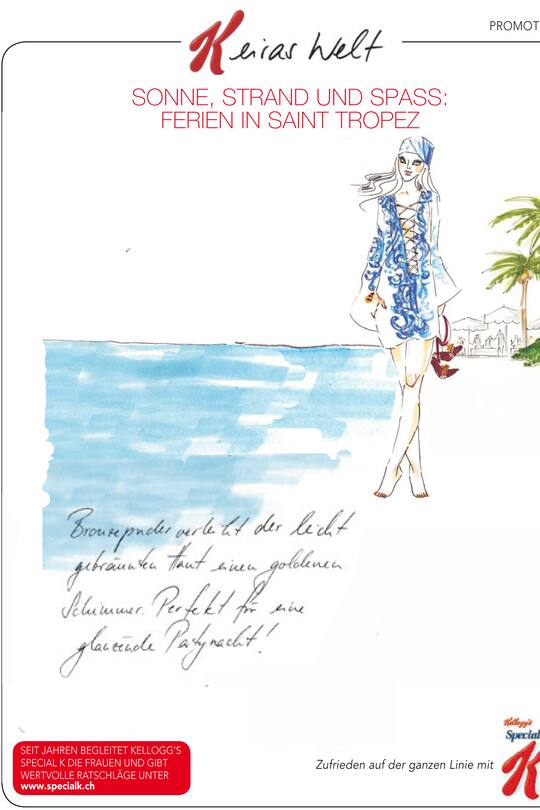 PROMOT
Keiras Welt
SONNE, STRAND UND SPASS:
FERIEN IN SAINT TROPEZ
Bronzepuder verleiht der leicht
gebräunten Haut einen goldenen
Schimmer. Perfekt für eine
glänzende Partynacht!
SEIT JAHREN BEGLEITET KELLOGG'S
SPECIAL K DIE FRAUEN UND GIBT
WERTVOLLE RATSCHLÄGE UNTER
www.specialk.ch
Zufrieden auf der ganzen Linie mit
Kellogg's
Special
K